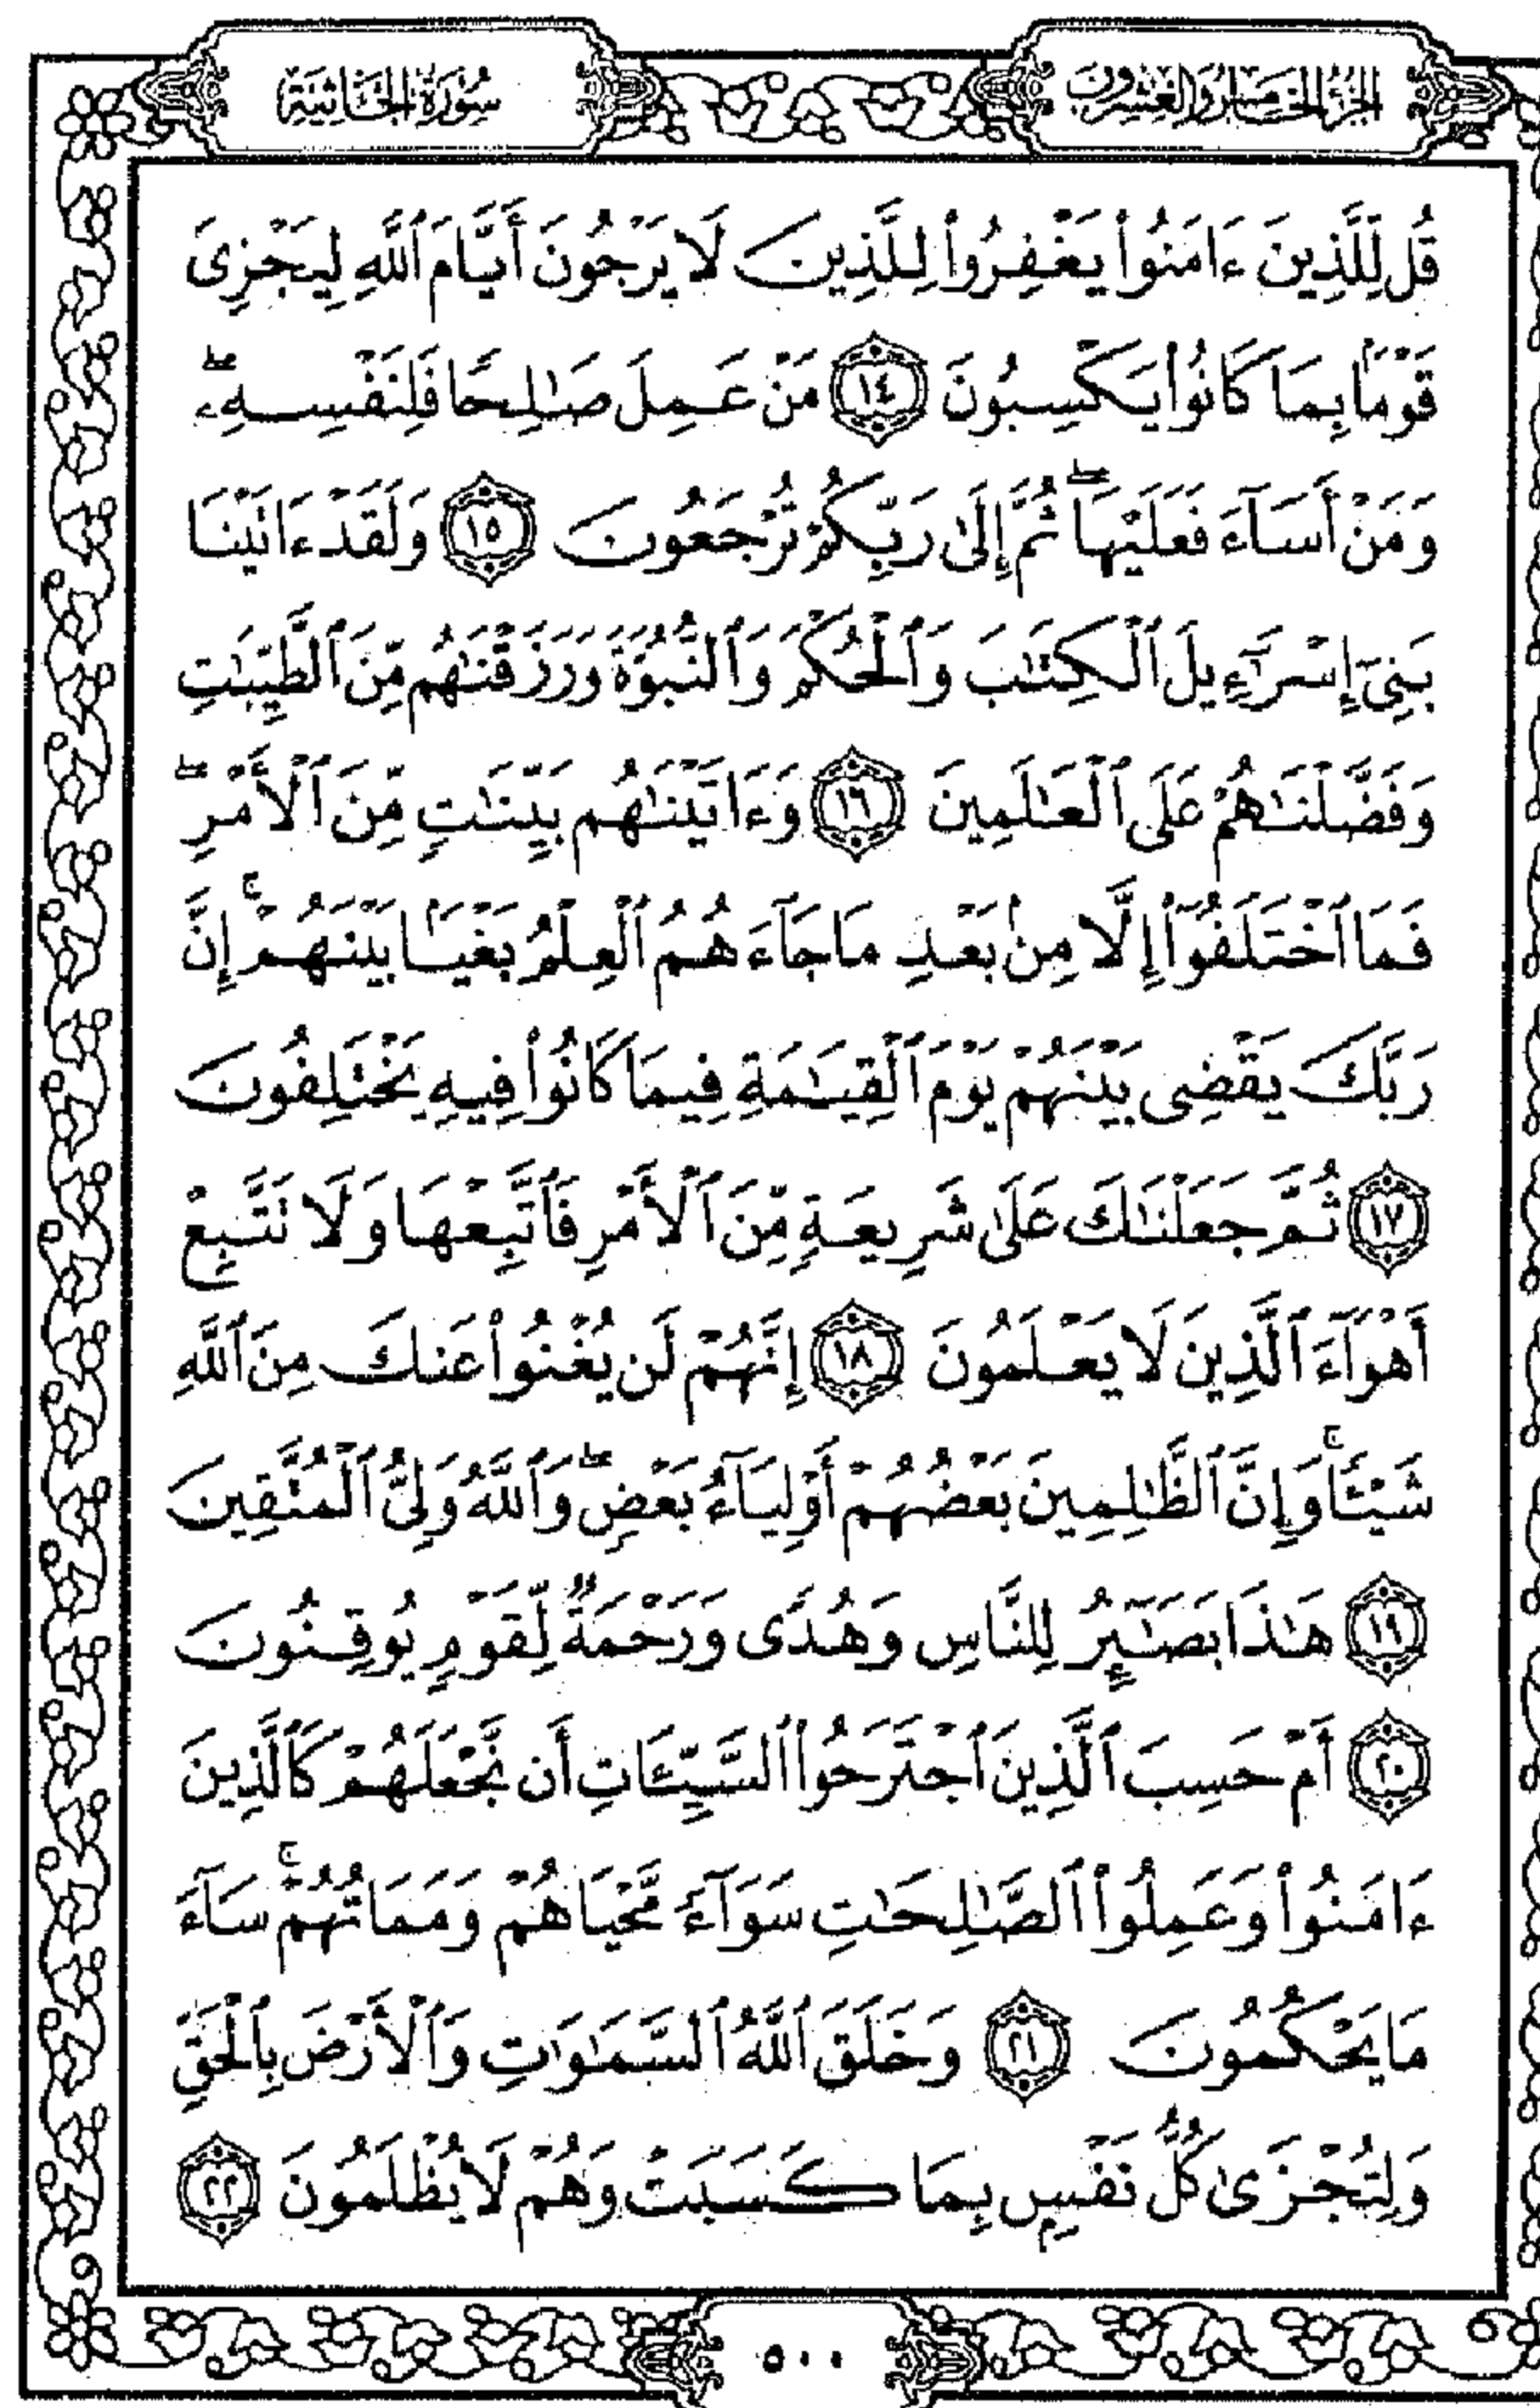 الجزء الخامس والعشرون
سُورَةُ الجَاثِيَةِ
قُل لِّلَّذِينَ ءَامَنُوا۟ يَغْفِرُوا۟ لِلَّذِينَ لَا يَرْجُونَ أَيَّامَ ٱللَّهِ لِيَجْزِىَ
قَوْمًۢا بِمَا كَانُوا۟ يَكْسِبُونَ ١٤ مَنْ عَمِلَ صَٰلِحًا فَلِنَفْسِهِۦ ۖ
وَمَنْ أَسَآءَ فَعَلَيْهَا ۖ ثُمَّ إِلَىٰ رَبِّكُمْ تُرْجَعُونَ ١٥ وَلَقَدْ ءَاتَيْنَا
بَنِىٓ إِسْرَٰٓءِيلَ ٱلْكِتَٰبَ وَٱلْحُكْمَ وَٱلنُّبُوَّةَ وَرَزَقْنَٰهُم مِّنَ ٱلطَّيِّبَٰتِ
وَفَضَّلْنَٰهُمْ عَلَى ٱلْعَٰلَمِينَ ١٦ وَءَاتَيْنَٰهُم بَيِّنَٰتٍ مِّنَ ٱلْأَمْرِ ۖ
فَمَا ٱخْتَلَفُوٓا۟ إِلَّا مِنۢ بَعْدِ مَا جَآءَهُمُ ٱلْعِلْمُ بَغْيًۢا بَيْنَهُمْ ۚ إِنَّ
رَبَّكَ يَقْضِى بَيْنَهُمْ يَوْمَ ٱلْقِيَٰمَةِ فِيمَا كَانُوا۟ فِيهِ يَخْتَلِفُونَ
١٧ ثُمَّ جَعَلْنَٰكَ عَلَىٰ شَرِيعَةٍ مِّنَ ٱلْأَمْرِ فَٱتَّبِعْهَا وَلَا تَتَّبِعْ
أَهْوَآءَ ٱلَّذِينَ لَا يَعْلَمُونَ ١٨ إِنَّهُمْ لَن يُغْنُوا۟ عَنكَ مِنَ ٱللَّهِ
شَيْـًٔا ۚ وَإِنَّ ٱلظَّٰلِمِينَ بَعْضُهُمْ أَوْلِيَآءُ بَعْضٍ ۖ وَٱللَّهُ وَلِىُّ ٱلْمُتَّقِينَ
١٩ هَٰذَا بَصَٰٓئِرُ لِلنَّاسِ وَهُدًى وَرَحْمَةٌ لِّقَوْمٍ يُوقِنُونَ
٢٠ أَمْ حَسِبَ ٱلَّذِينَ ٱجْتَرَحُوا۟ ٱلسَّيِّـَٔاتِ أَن نَّجْعَلَهُمْ كَٱلَّذِينَ
ءَامَنُوا۟ وَعَمِلُوا۟ ٱلصَّٰلِحَٰتِ سَوَآءً مَّحْيَاهُمْ وَمَمَاتُهُمْ ۚ سَآءَ
مَا يَحْكُمُونَ ٢١ وَخَلَقَ ٱللَّهُ ٱلسَّمَٰوَٰتِ وَٱلْأَرْضَ بِٱلْحَقِّ
وَلِتُجْزَىٰ كُلُّ نَفْسٍۭ بِمَا كَسَبَتْ وَهُمْ لَا يُظْلَمُونَ ٢٢
٥٠٠